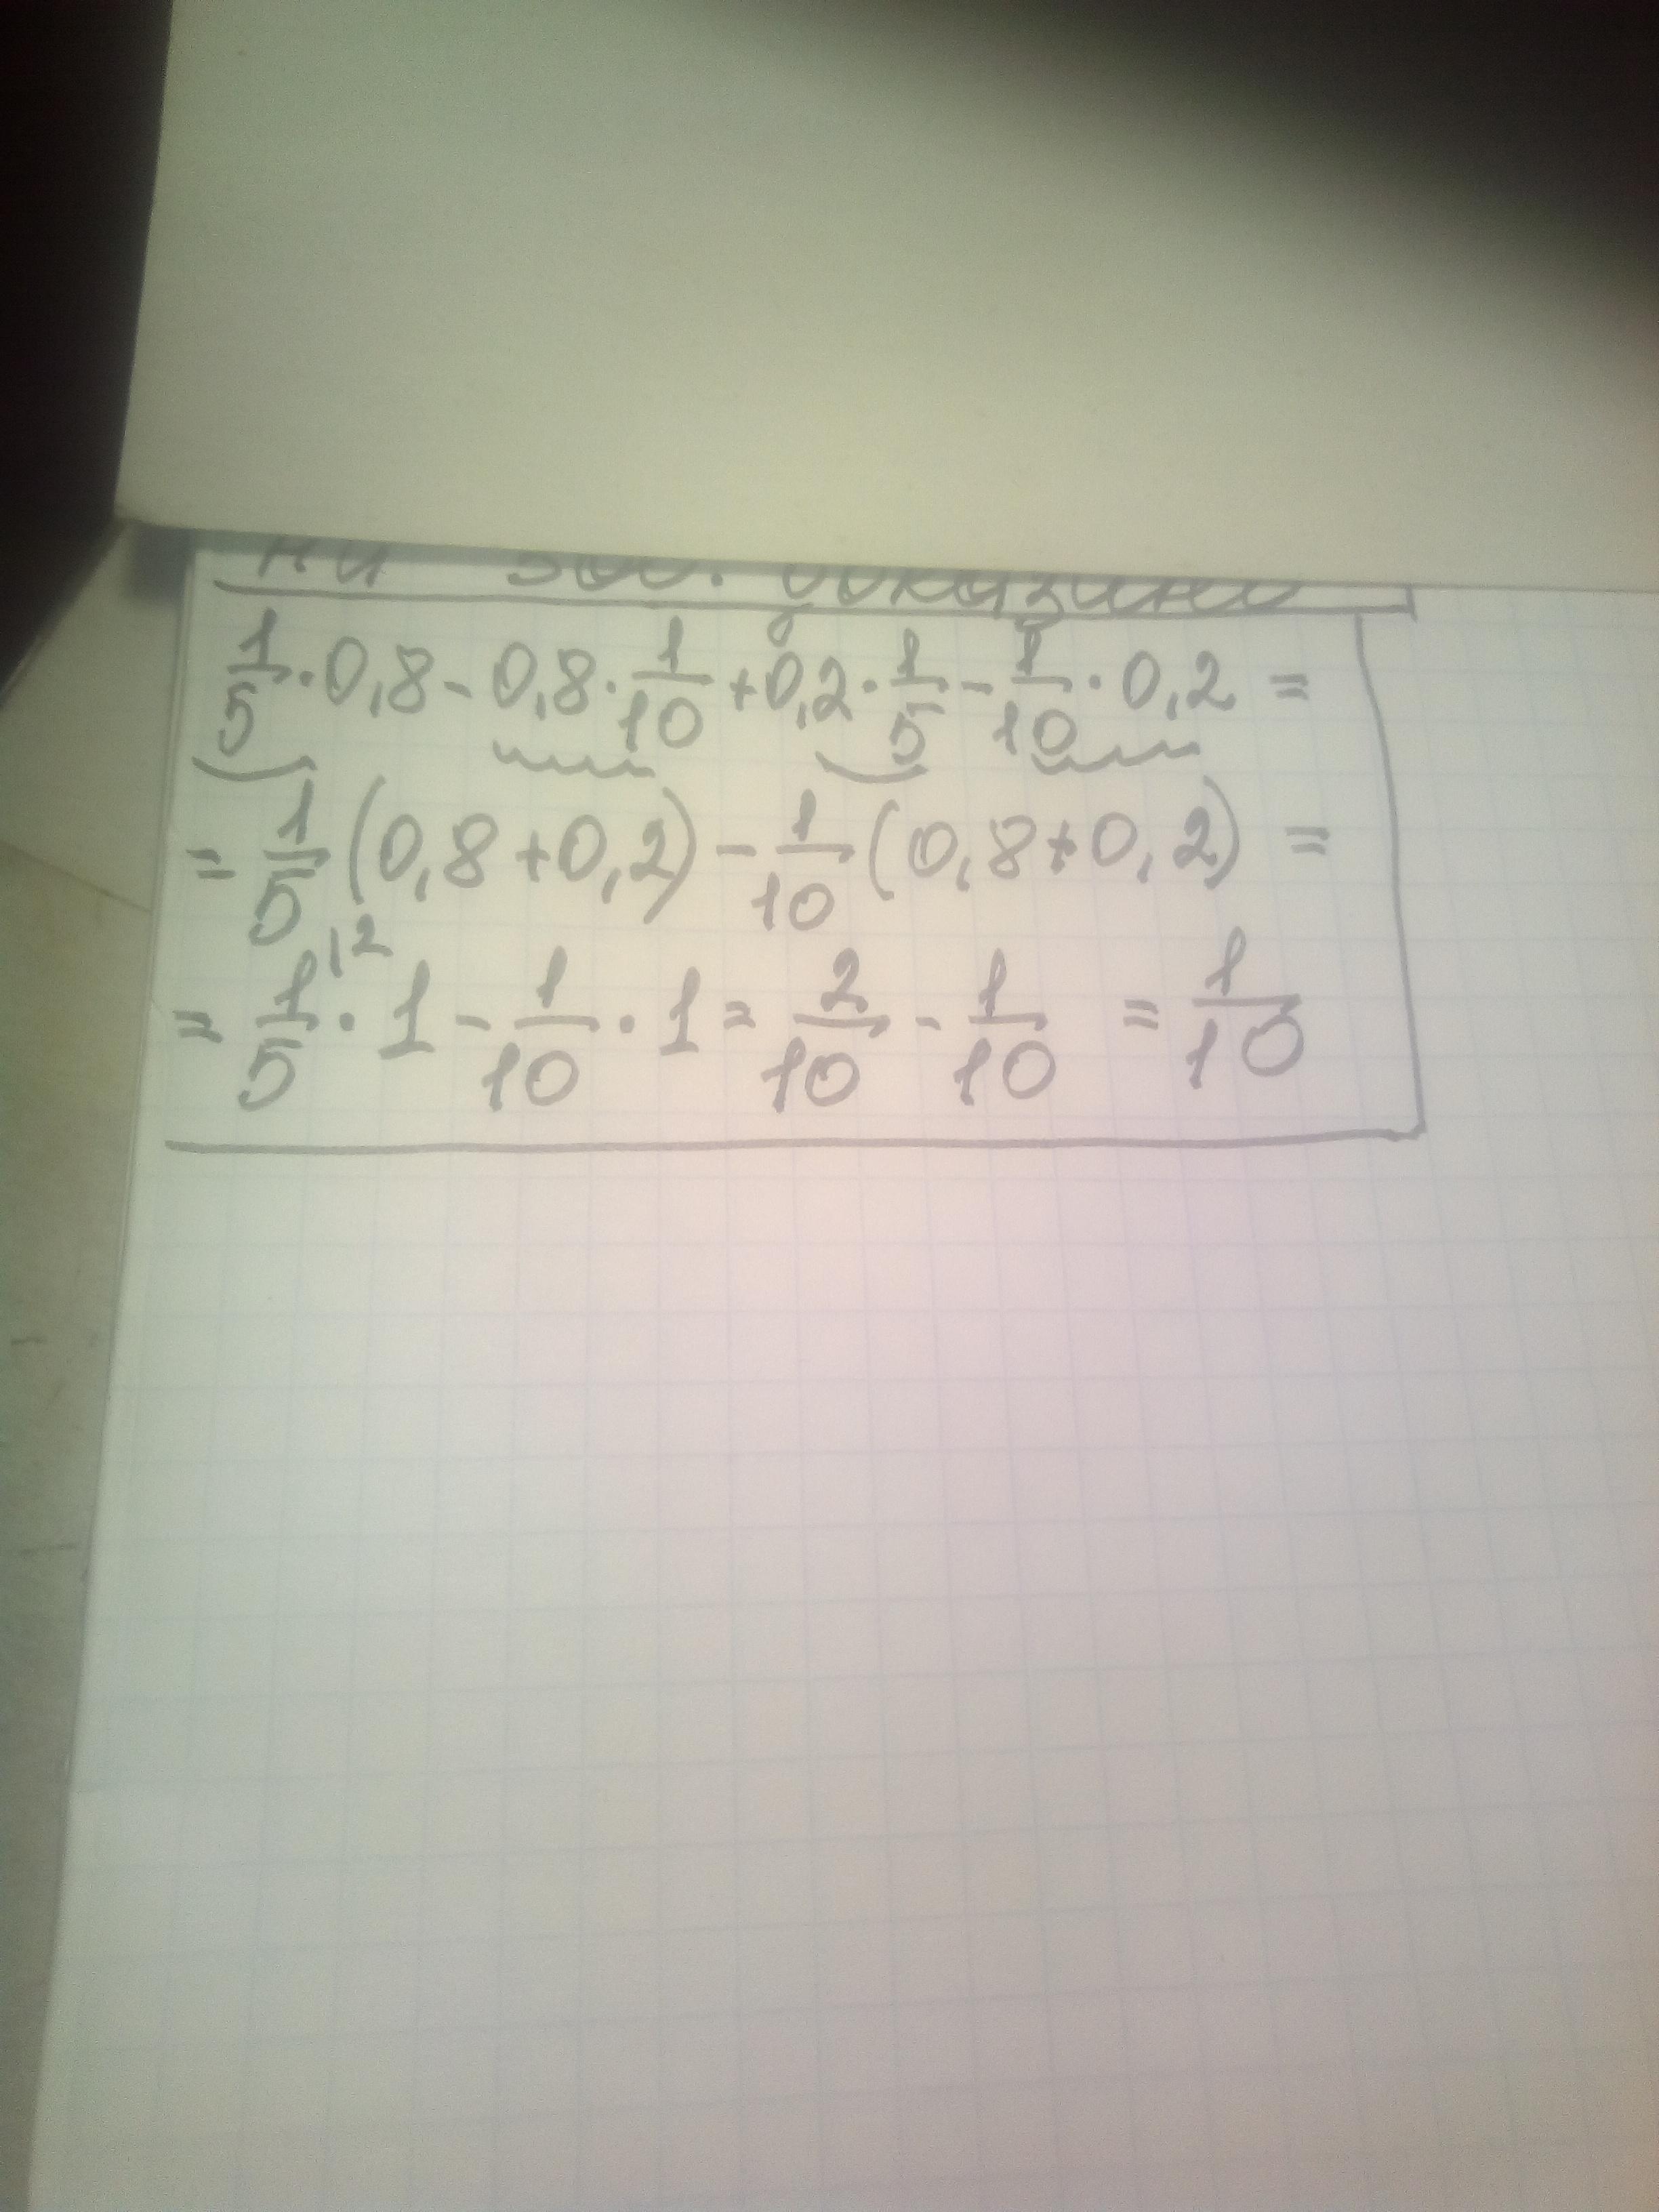 1/5 · 0,8 - 0,8 · 1/10 + 0,2 · 1/5 - 1/10 · 0,2 =
= 1/5 (0,8 + 0,2) - 1/10 (0,8 + 0,2) =
= 1/5 |2 · 1 - 1/10 · 1 = 2/10 - 1/10 = 1/10